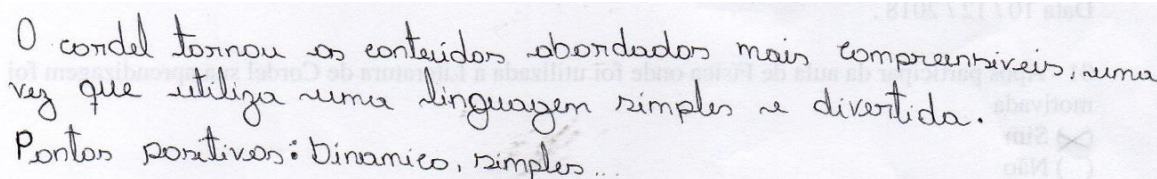 O cordel tornou os conteúdos abordados mais compreensiveis, uma
vez que utiliza uma linguagem simples e divertida.
Pontos positivos: Dinamico, simples...